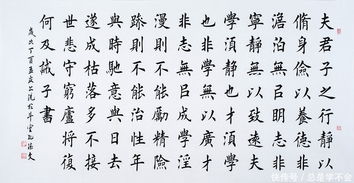 夫君子之行靜以
脩身儉以養德非
澹泊無以明志非
寧靜無以致遠夫
學須靜也才須學
也非學無以廣才
非志無以成學淫
漫則不能勵精險
躁則不能治性年
與時馳意與日去
遂成枯落多不接
世悲守窮廬將復
何及誡子書
歲次丁酉孟夏上浣
快传号/总是学不会